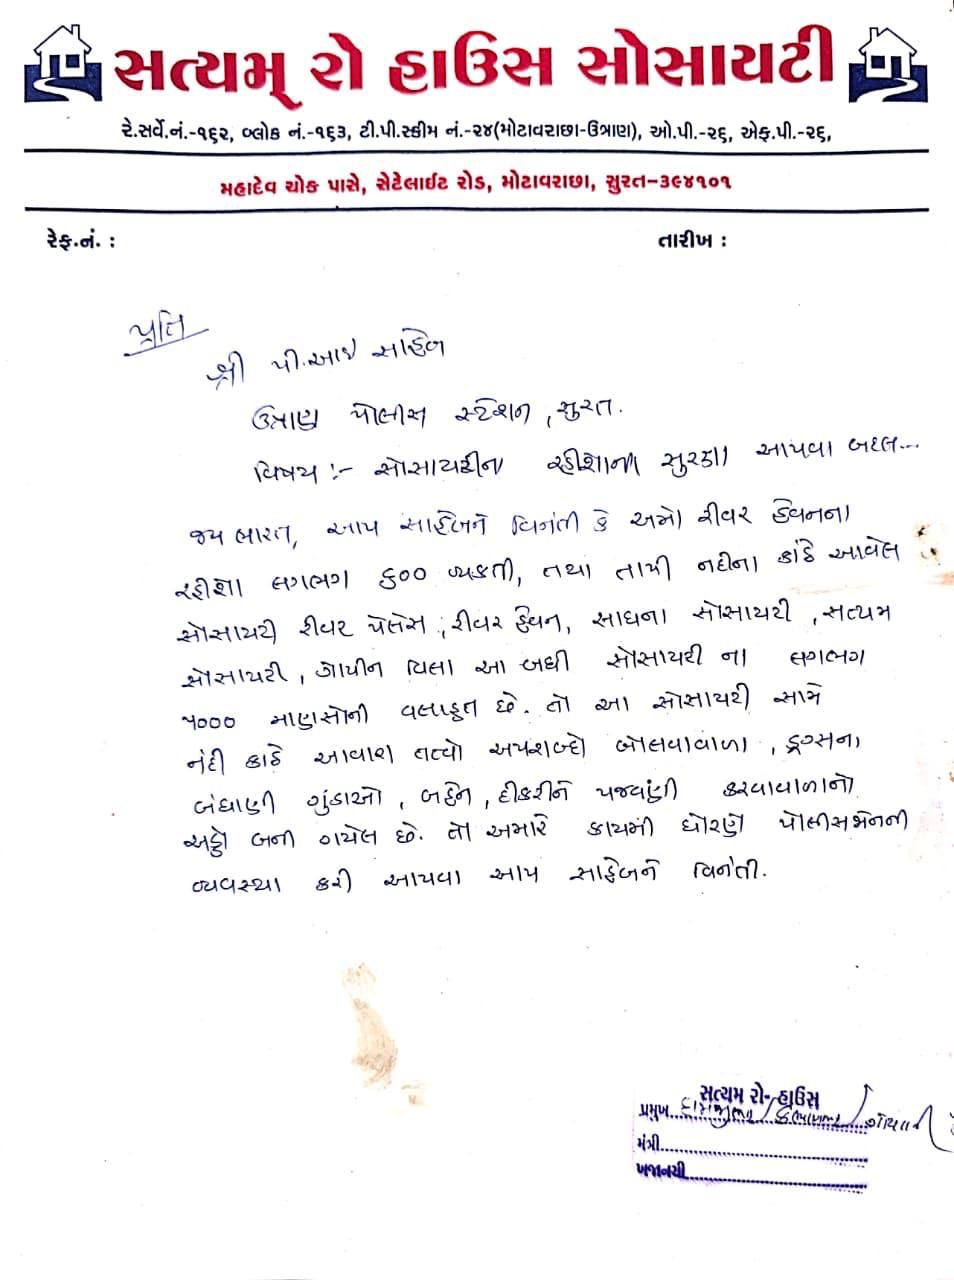 સત્યમ્ રો હાઉસ સોસાયટી
રે.સર્વે.નં.-૧૬૨, બ્લોક નં.-૧૬૩, ટી.પી.સ્કીમ નં.-૨૪(મોટાવરાછા-ઉત્રાણ), ઓ.પી.-૨૬, એફ.પી.-૨૬,
મહાદેવ ચોક પાસે, સેટેલાઈટ રોડ, મોટાવરાછા, સુરત-૩૯૪૧૦૧
રેફ.નં. : તારીખ :
પ્રતિ
શ્રી પી.આઇ સાહેબ
ઉત્રાણ પોલીસ સ્ટેશન, સુરત.
વિષય :- સોસાયટીના રહીશોના સુરક્ષા આપવા બદલ...
જય ભારત, આપ સાહેબને વિનંતી કે અમો રીવર હેવનના
રહીશો લગભગ ૬૦૦ વ્યકતી, તથા તાપી નદીના કાંઠે આવેલ
સોસાયટી રીવર પેલેસ, રીવર હેવન, સાધના સોસાયટી, સત્યમ
સોસાયટી, ગોપીન વિલા આ બધી સોસાયટી ના લગભગ
૫૦૦૦ માણસોની વસાહત છે. તો આ સોસાયટી સામે
નંદી કાઠે આવારા તત્વો અપશબ્દો બોલવાવાળા, ડ્રગ્સના
બંધાણી ગુંડાઓ, બહેન, દીકરીને પજવણી કરવાવાળાનો
અડ્ડો બની ગયેલ છે. તો અમારે કાયમી ધોરણે પોલીસમેનની
વ્યવસ્થા કરી આપવા આપ સાહેબને વિનંતી.
સત્યમ રો-હાઉસ
પ્રમુખ
મંત્રી
ખજાનચી